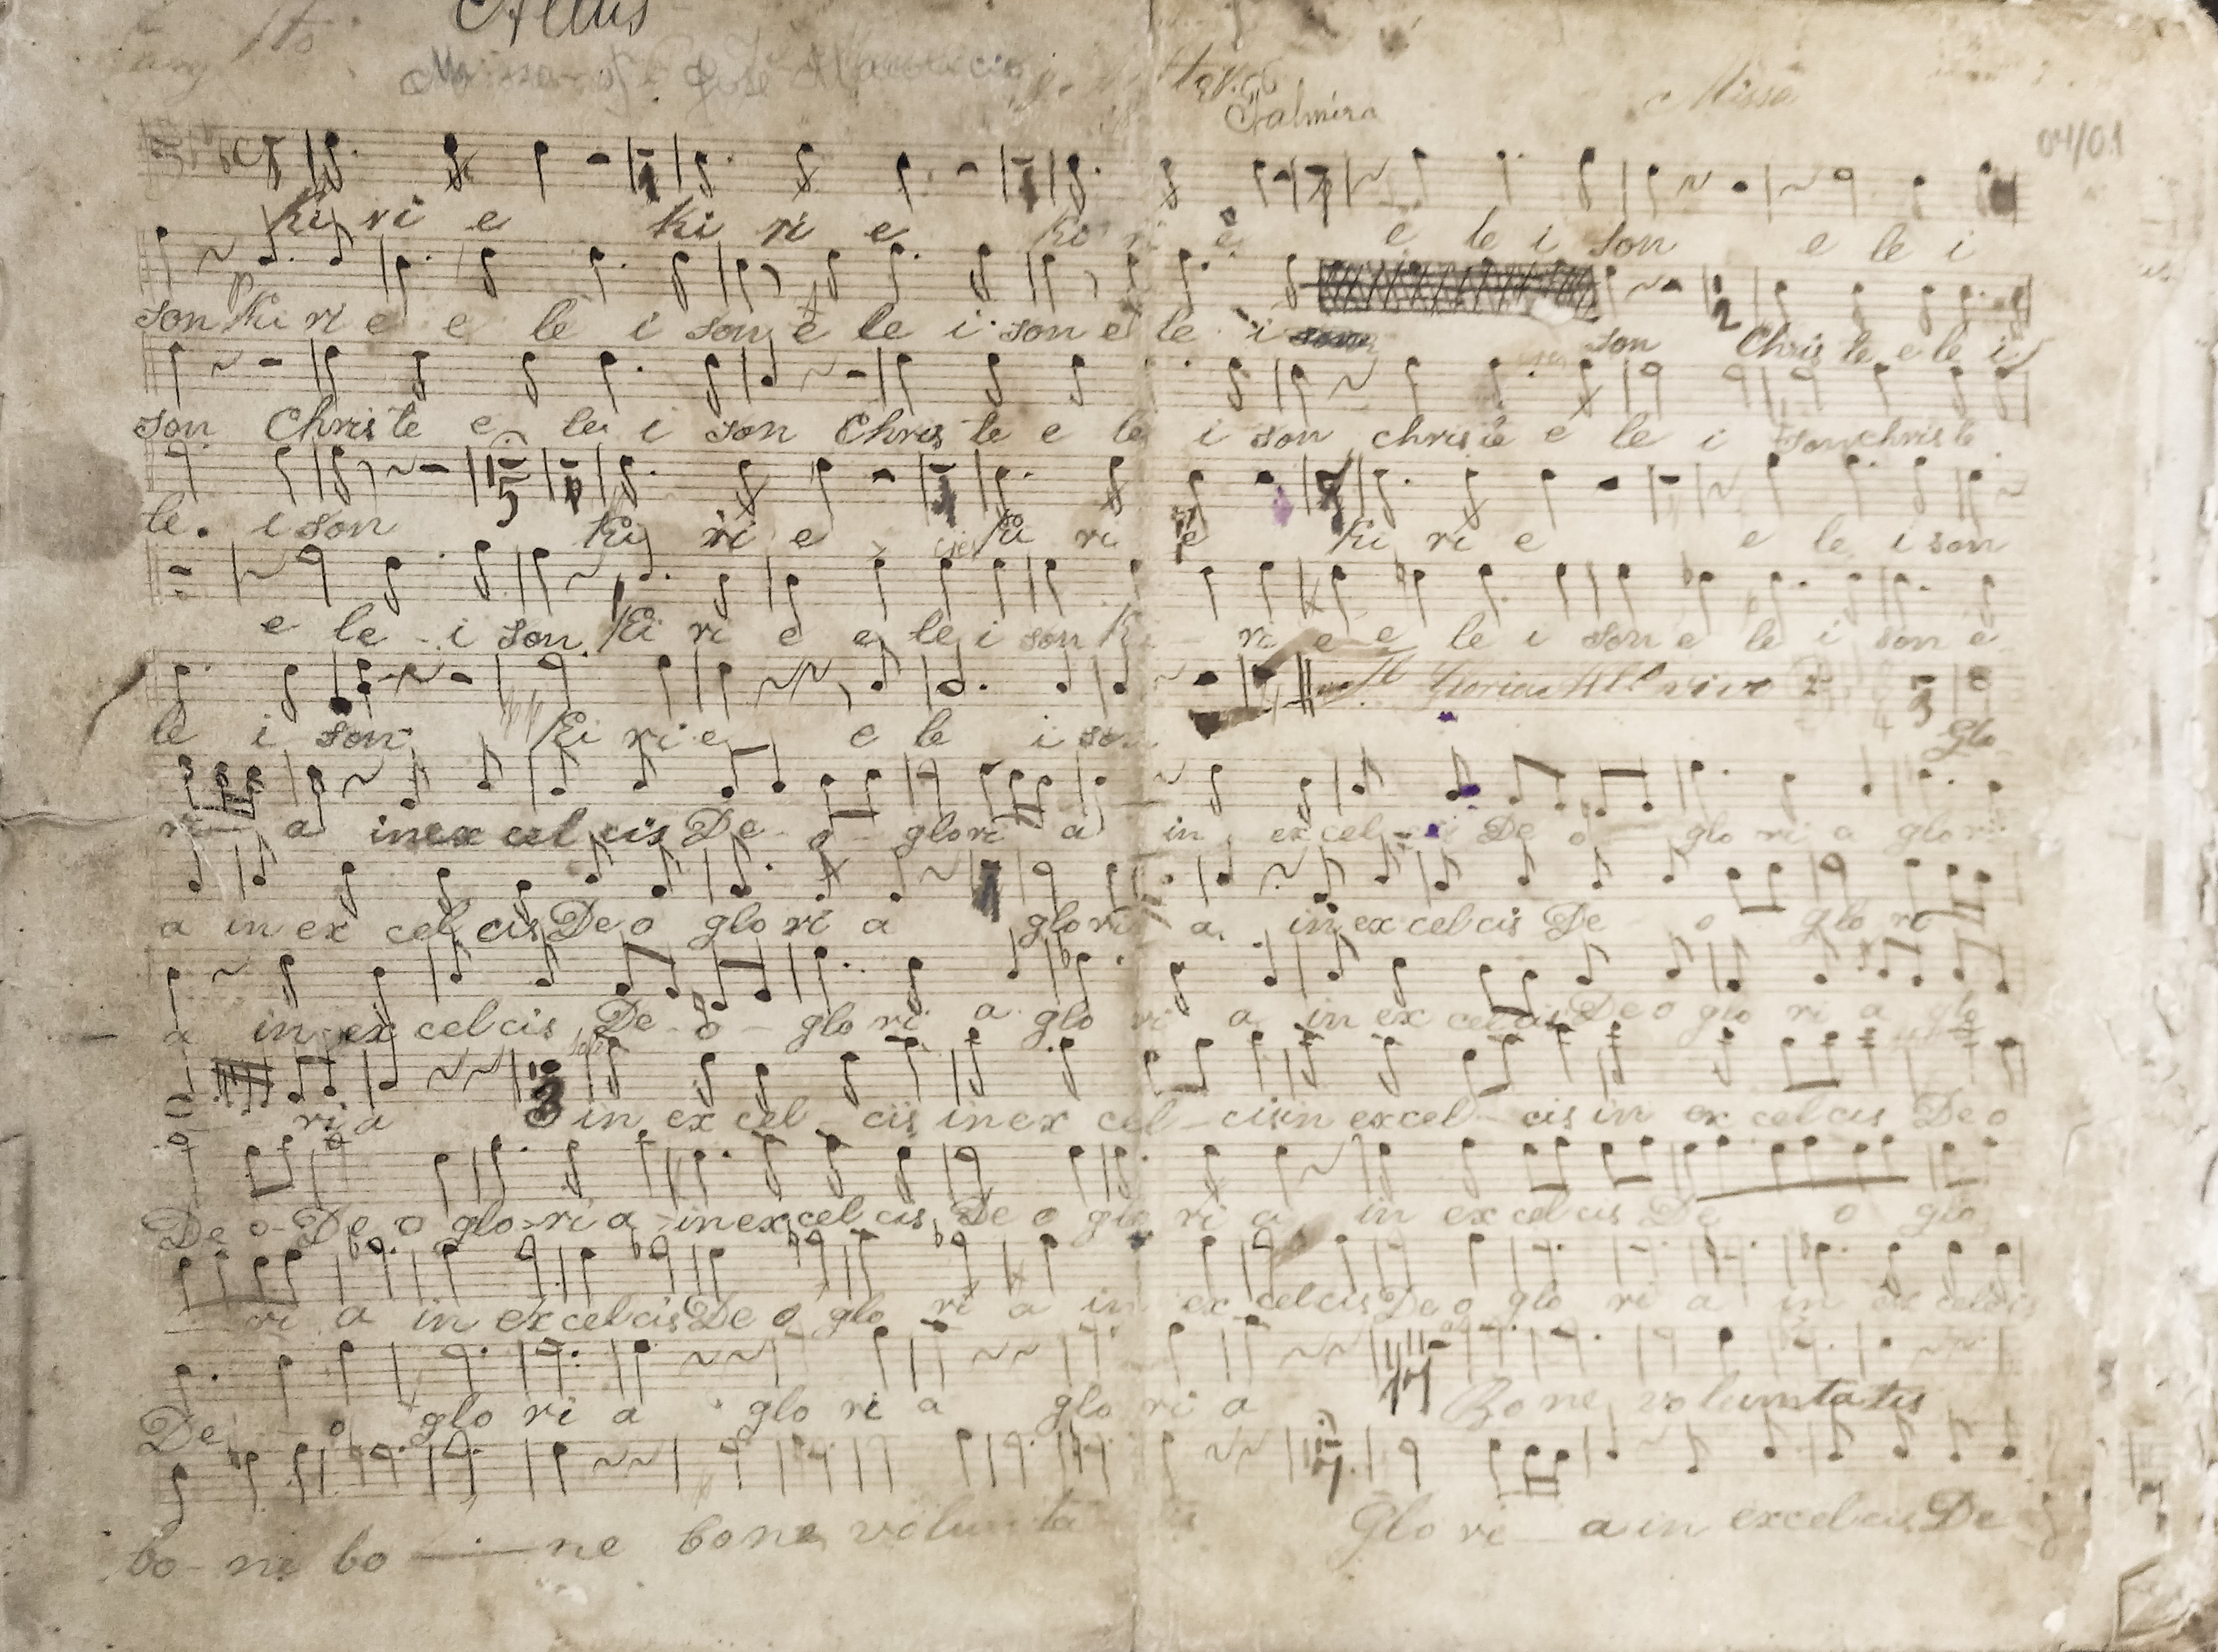 Altus
Missa José Mauricio
Palmira
Missa
04/01
Ki ri e Ki ri e Ki ri e e le i son e le i
son Ki ri e e le i son e le i son e le i son Chris te e le i
son Chris te e le i son Chris te e le i son chris te e le i son chris te
le. i son Ki ri e Ki ri e Ki ri e e le i son
e le - i son Ki ri e e le i son Ki - ri e e le i son e le i son e
le i son Ki ri e e le i son Gloria All.º vivo 3
Glo
ri - a in ex cel cis De - o - glo ri a in ex cel - cis De o glo ri a glo ri
a in ex cel cis De o glo ri a glo ri a. in ex cel cis De - o glo ri
a in ex cel cis De - o - glo ri a glo ri a in ex cel cis De o glo ri a glo
ri a 3 in ex cel - cis in ex cel - cis in ex cel - cis in ex cel cis De o
De o - De o glo - ri a - in ex cel cis De o glo ri a in ex cel cis De o glo
ri a in ex cel cis De o glo ri a in ex cel cis De o glo ri a in ex cel cis
De o glo ri a glo ri a glo ri a 17 Bo ne vo lum ta tis
bo - ne bo - ne bo ne volun ta Glo ri - a in excel cis De